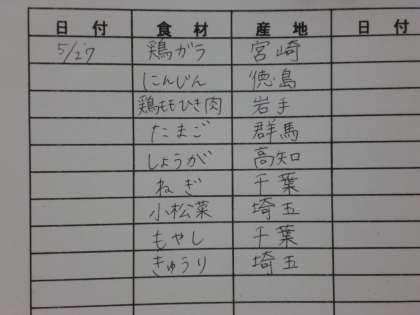 日付 食材 産地 日付
5/27 鶏ガラ 宮崎
にんじん 徳島
鶏ももひき肉 岩手
たまご 群馬
しょうが 高知
ねぎ 千葉
小松菜 埼玉
もやし 千葉
きゅうり 埼玉